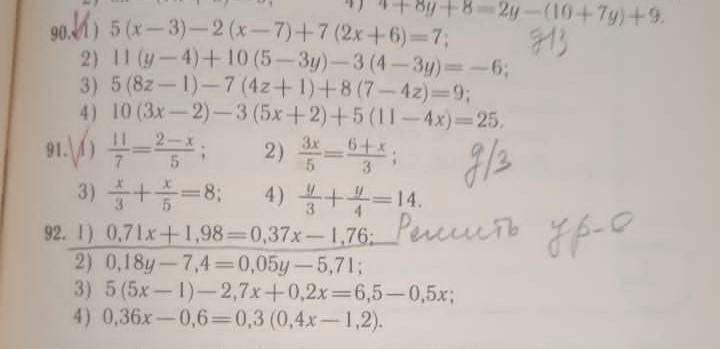 4) 4+8y+8=2y—(10+7y)+9.
90. 1) 5(x—3)—2(x—7)+7(2x+6)=7; д/з
2) 11(y—4)+10(5—3y)—3(4—3y)=—6;
3) 5(8z—1)—7(4z+1)+8(7—4z)=9;
4) 10(3x—2)—3(5x+2)+5(11—4x)=25.
91. 1) 11/7=2—x/5; 2) 3x/5=6+x/3; д/з
3) x/3+x/5=8; 4) y/3+y/4=14.
92. 1) 0,71x+1,98=0,37x—1,76; Решить ур-е
2) 0,18y—7,4=0,05y—5,71;
3) 5(5x—1)—2,7x+0,2x=6,5—0,5x;
4) 0,36x—0,6=0,3(0,4x—1,2).